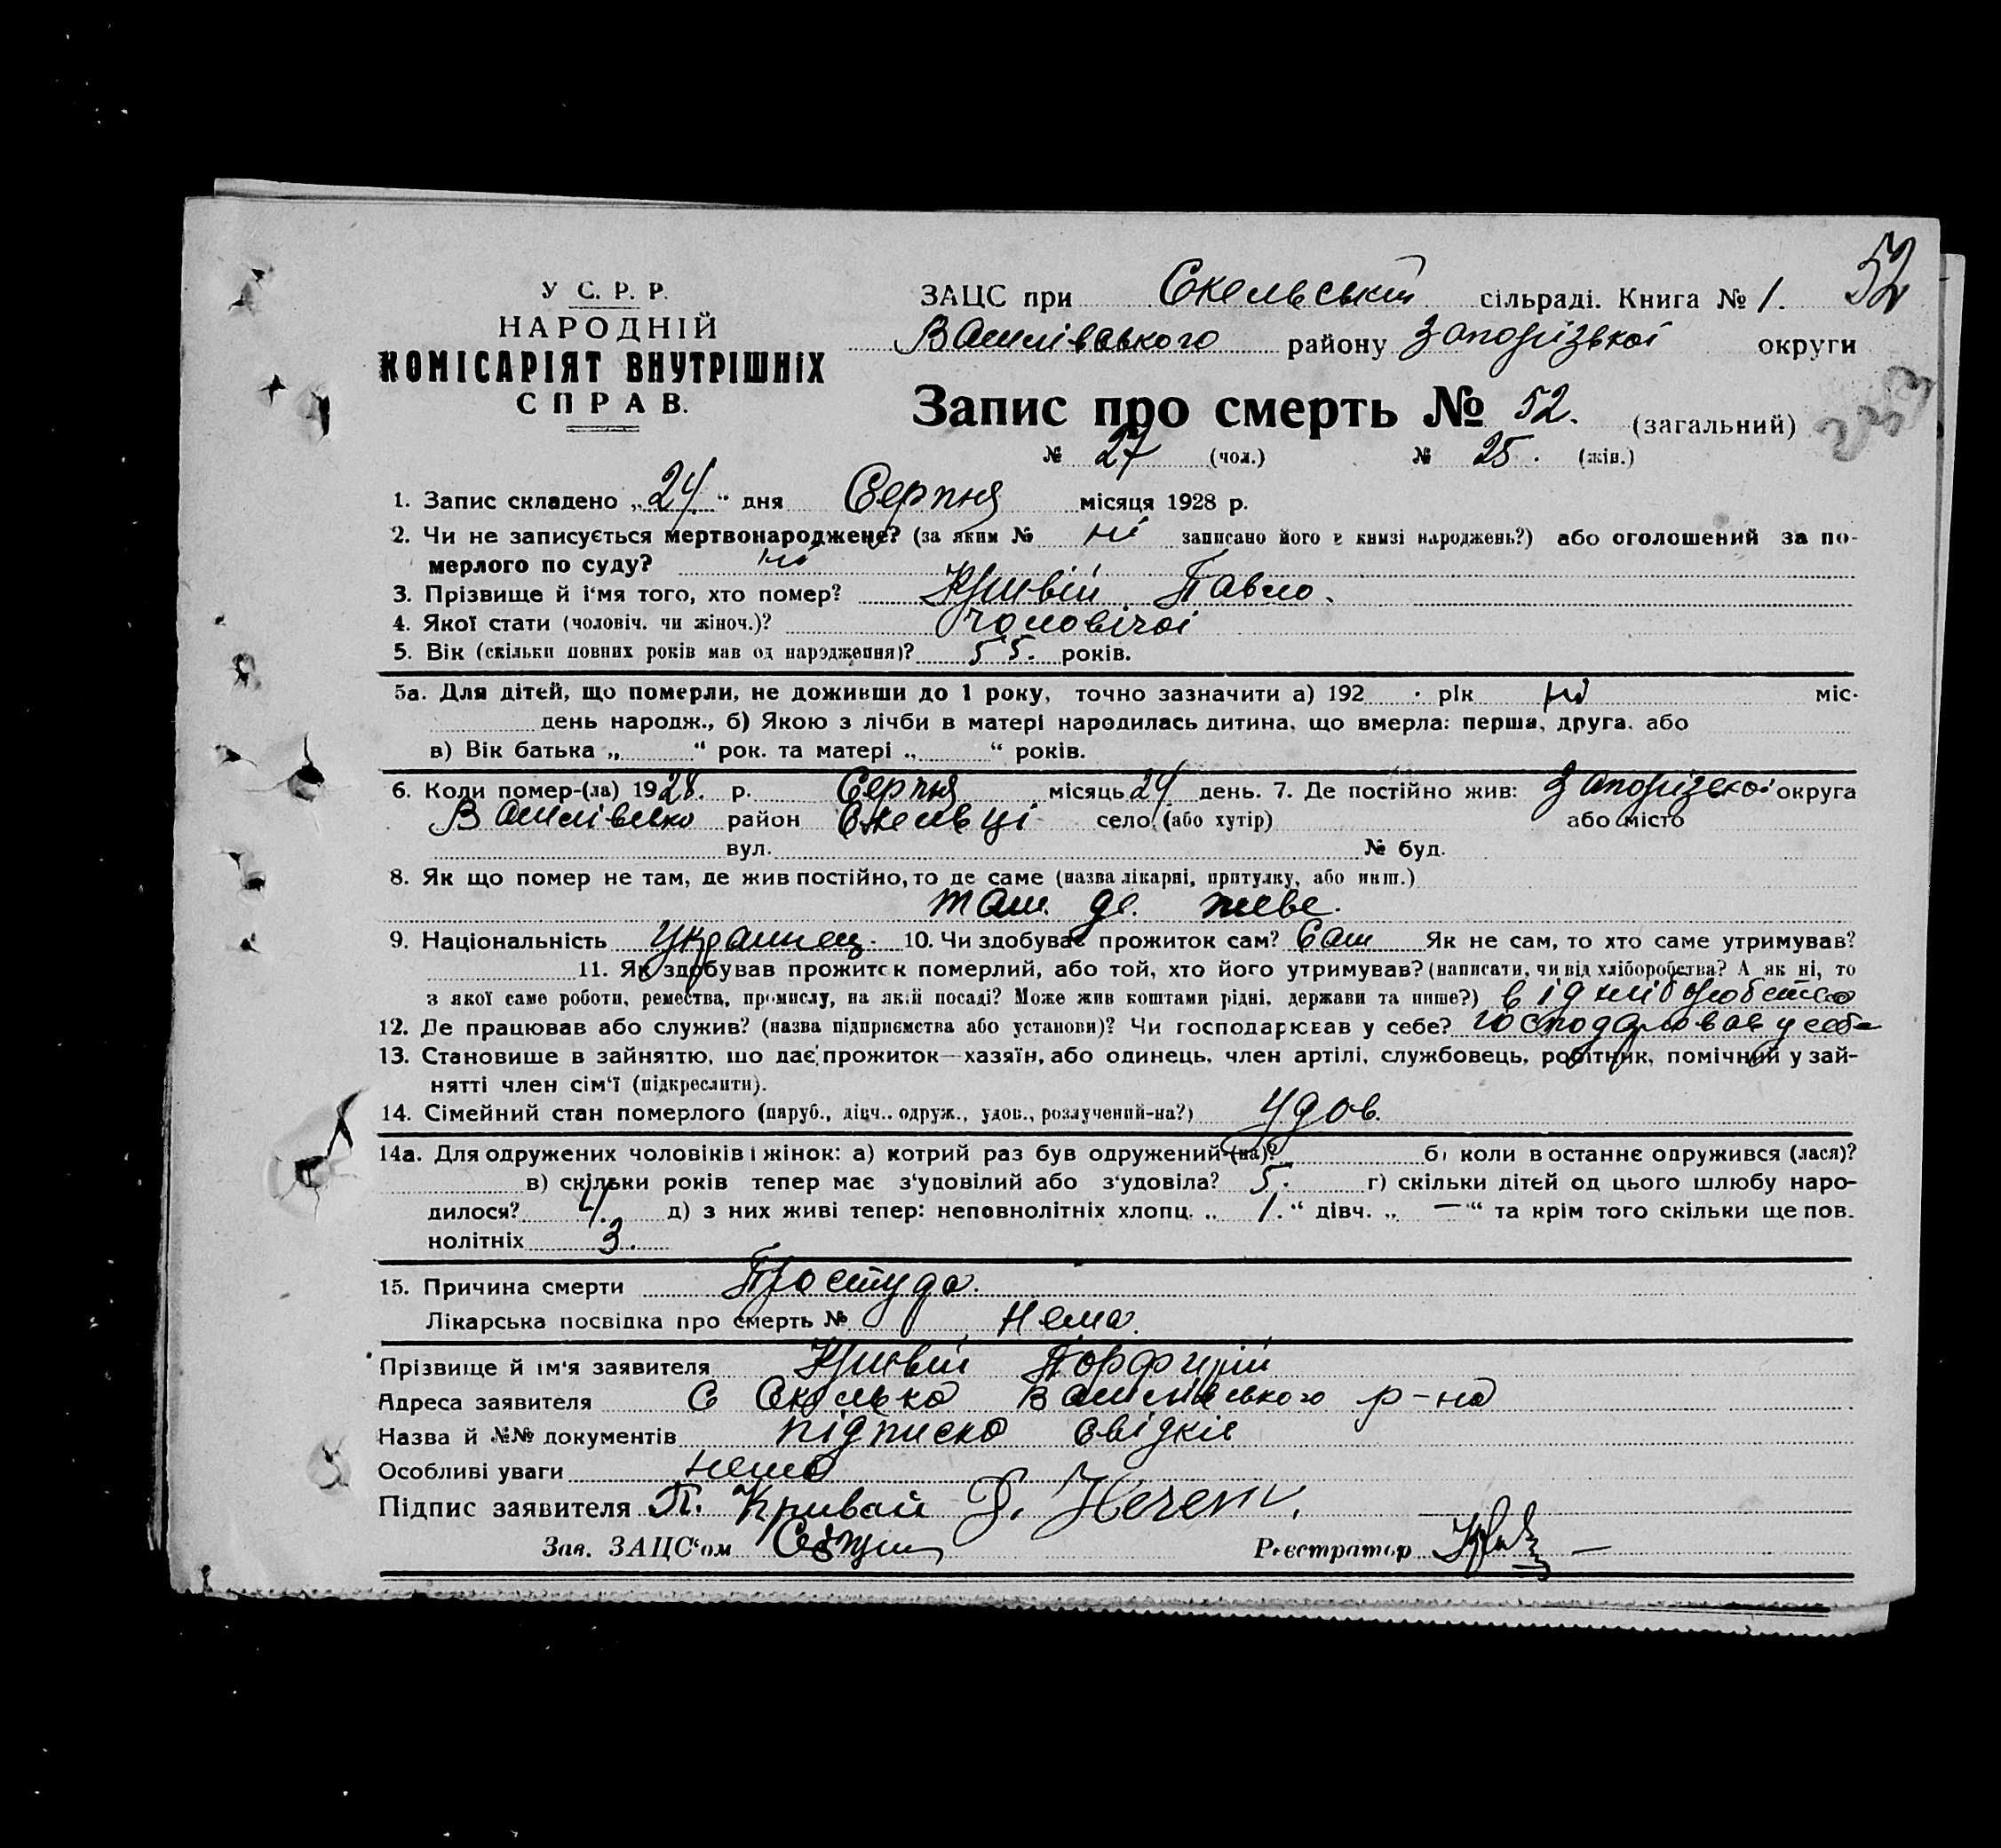 52
У С. Р. Р.
НАРОДНІЙ
КОМІСАРІЯТ ВНУТРІШНІХ
СПРАВ.
ЗАЦС при Скельській сільраді. Книга № 1.
Василівського району Запорізької округи
Запис про смерть № 52. (загальний)
№ 27 (чол.) № 25. (жін.)
1. Запис складено „24“ дня Серпня місяця 1928 р.
2. Чи не записується мертвонароджене? (за яким № ні записано його в книзі народжень?) або оголошений за по-
мерлого по суду? ні
3. Прізвище й і'мя того, хто помер? Кривій Павло.
4. Якої стати (чоловіч. чи жіноч.)? чоловічої
5. Вік (скільки повних років мав од народження)? 55. років.
5а. Для дітей, що померли, не доживши до 1 року, точно зазначити а) 192 . рік ні міс.
день народж., б) Якою з лічби в матері народилась дитина, що вмерла: перша, друга. або
в) Вік батька „ “ рок. та матері „ “ років.
6. Коли помер-(ла) 1928. р. Серпня місяць 24 день. 7. Де постійно жив: Запорізької округа
район село (або хутір) або місто
вул. № буд.
8. Як що помер не там, де жив постійно, то де саме (назва лікарні, притулку, або инш.)
там де живе.
9. Національність Украинец. 10. Чи здобував прожиток сам? Сам Як не сам, то хто саме утримував?
11. Як здобував прожиток померлий, або той, хто його утримував? (написати, чи від хліборобства? А як ні, то
з якої саме роботи, ремества, промислу, на якій посаді? Може жив коштами рідні, держави та инше?) від хліборобства
12. Де працював або служив? (назва підприємства або установи)? Чи господарював у себе? господарював у себе
13. Становище в зайняттю, що дає прожиток—хазяїн, або одинець, член артілі, службовець, робітник, помічний у зай-
нятті член сім'ї (підкреслити).
14. Сімейний стан померлого (паруб., дівч.. одруж., удов., розлучений-на?) удов.
14а. Для одружених чоловіків і жінок: а) котрий раз був одружений (на)? б) коли в останнє одружився (лася)?
в) скільки років тепер має з'удовілий або з'удовіла? 5. г) скільки дітей од цього шлюбу наро-
дилося? 4. д) з них живі тепер: неповнолітніх хлопц. „ 1. “ дівч. „ — “ та крім того скільки ще пов.
нолітніх 3.
15. Причина смерти Простуда.
Лікарська посвідка про смерть № Нема.
Прізвище й ім'я заявителя Кривій Порфирій
Адреса заявителя С Скелька Василівського р-на
Назва й №№ документів підписка свідків
Особливі уваги нема
Підпис заявителя П. Кривай
Зав. ЗАЦС'ом Реєстратор